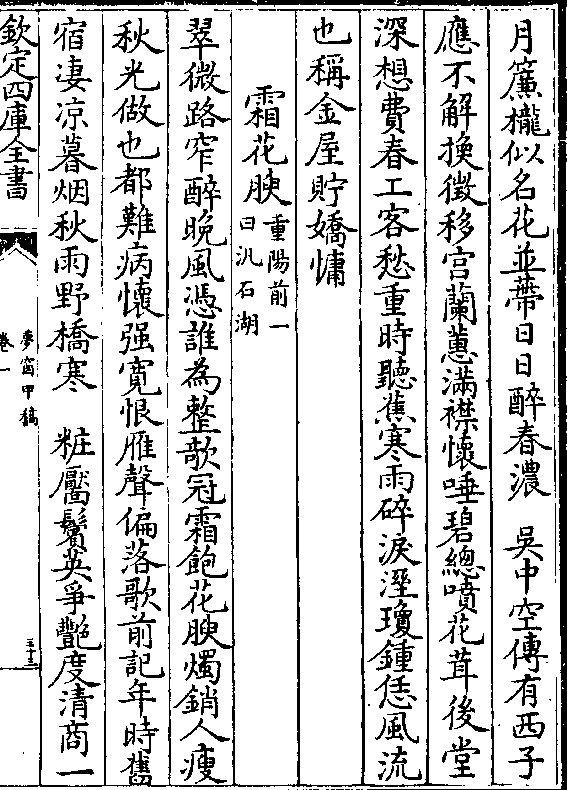 月簾櫳似名花並蔕日日醉春濃　吳中空傳有西子
應不解換徵移宮蘭蕙滿襟懷唾碧總噴花茸後堂
深想費春工客愁重時聽蕉寒雨碎淚溼瓊鍾恁風流
也稱金屋貯嬌慵
霜花腴重陽前一
日汎石湖
翠微路窄醉晚風憑誰為整欹冠霜飽花腴燭銷人瘦
秋光做也都難病懷强寬恨雁聲偏落歌前記年時舊
宿凄凉暮烟秋雨野橋寒　粧靨鬢英爭艷度清商一
欽定四庫全書
夢窗甲稿
卷一
三十三